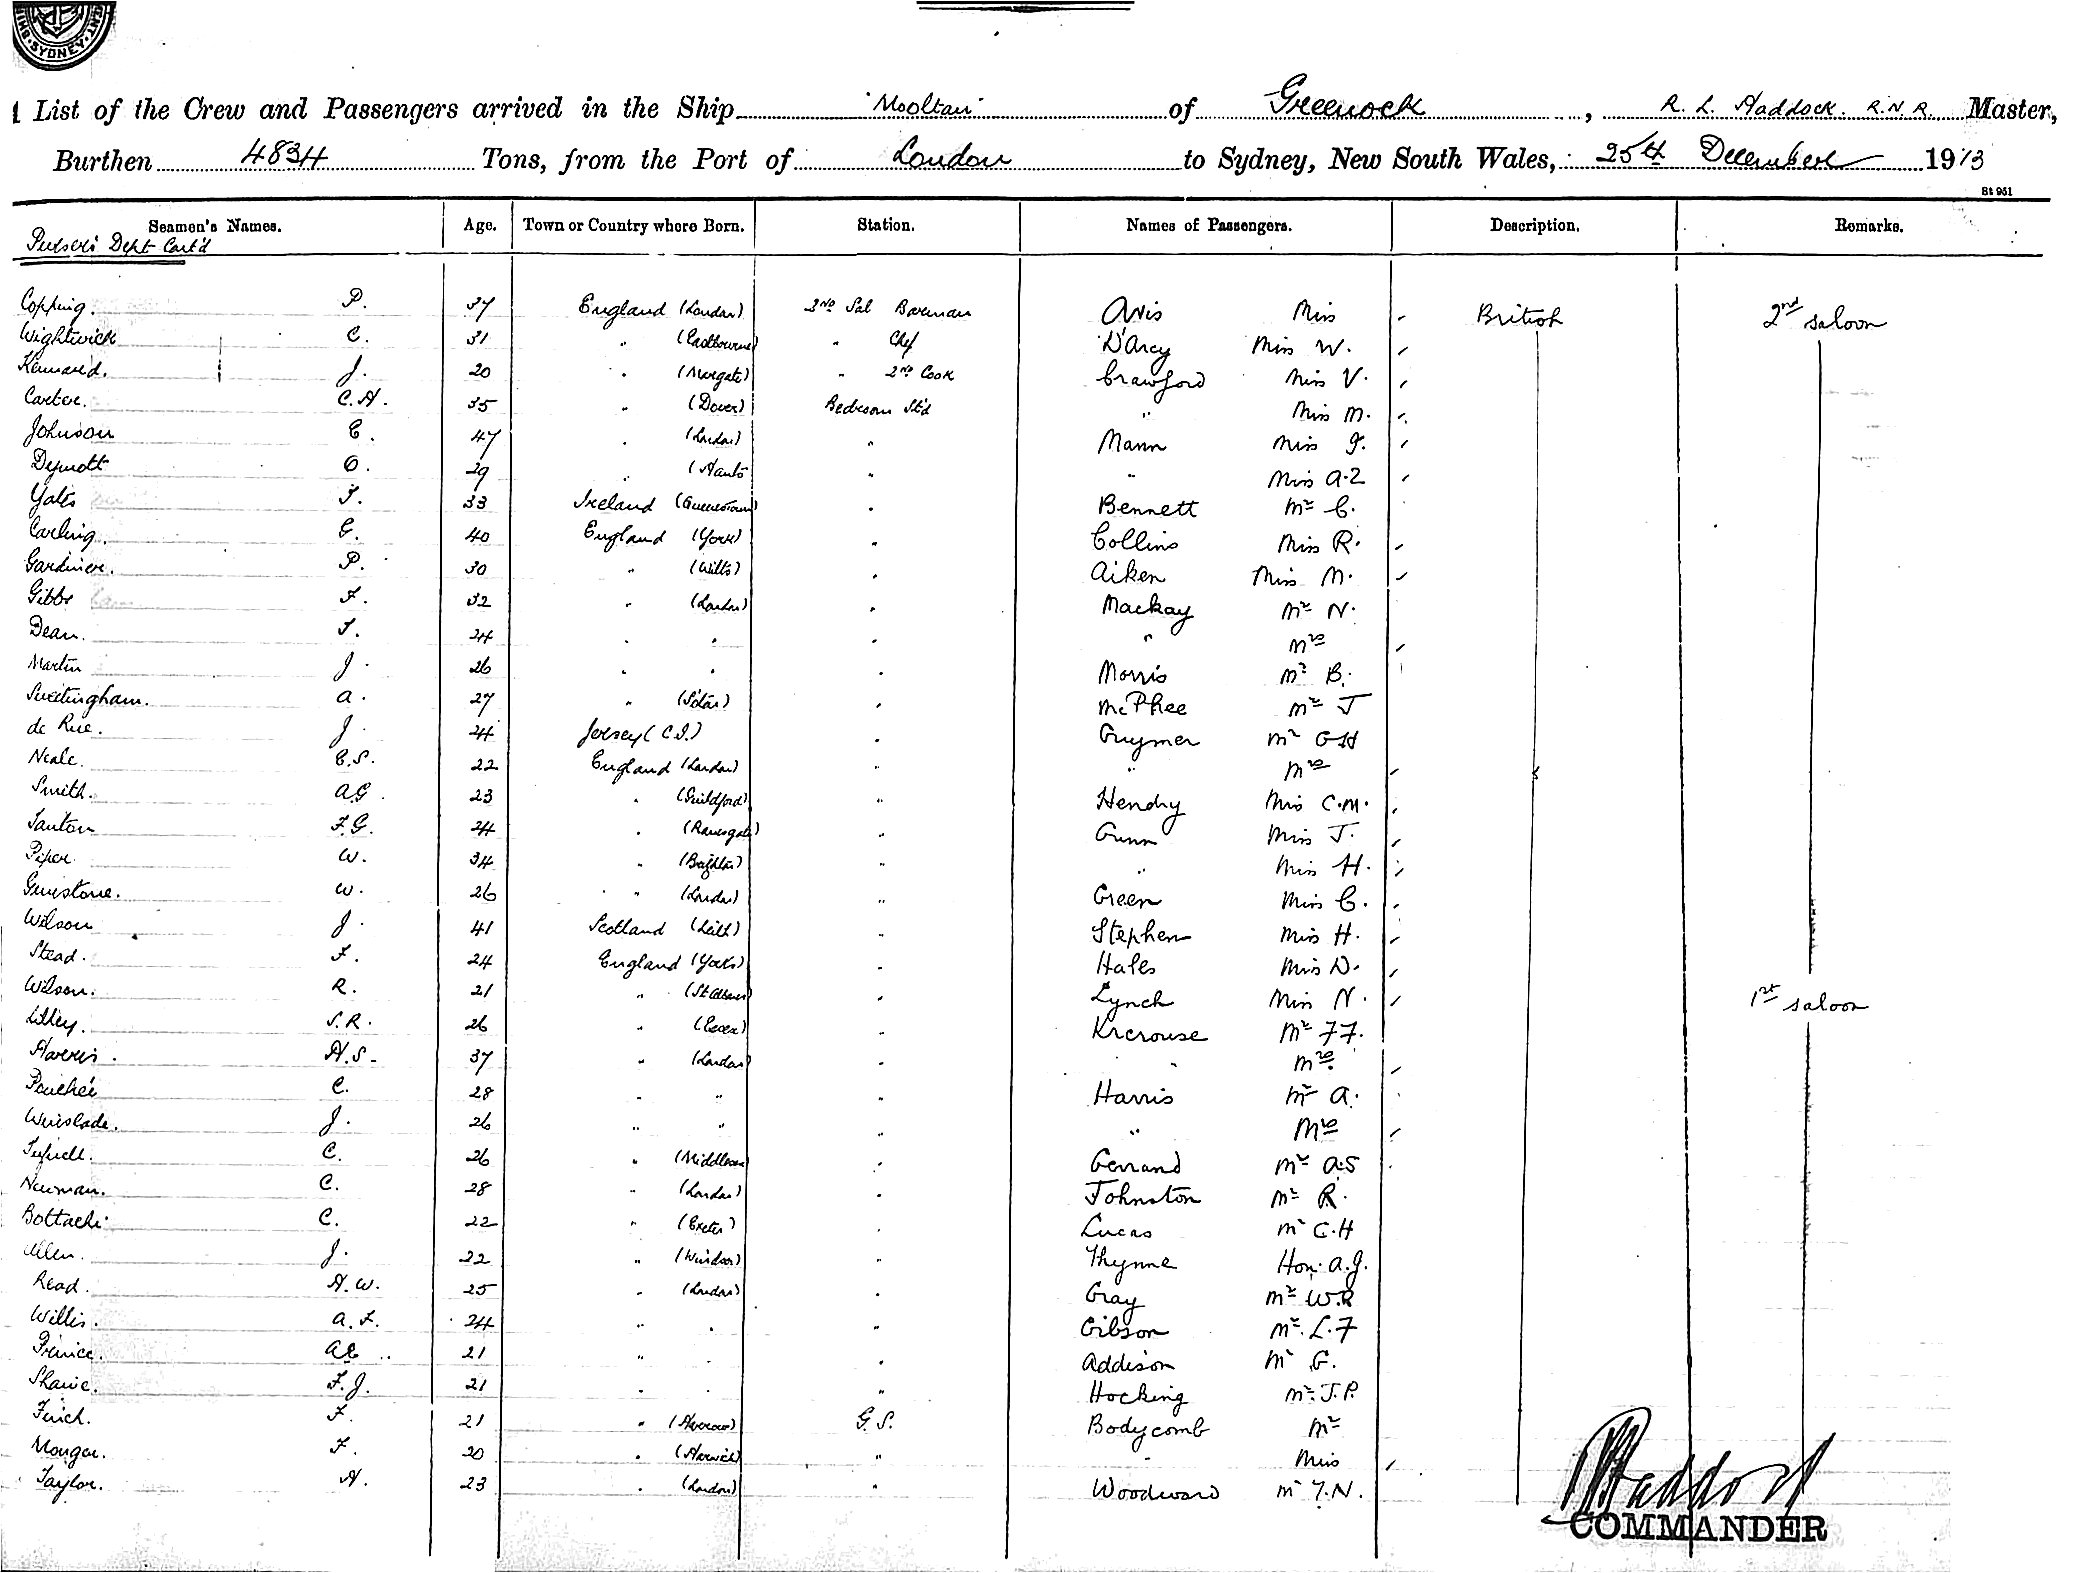 SYDNEY
List of the Crew and Passengers arrived in the Ship "Mooltan" of Greenock, R. L. Haddock. R.N.R. Master,
Burthen 4834 Tons, from the Port of London to Sydney, New South Wales, 25th December 1913
St 951
Seamen's Names. Age. Town or Country where Born. Station. Names of Passengers. Description. Remarks.
Purser's Dept Cont'd
Copping. P. 37 England (London) 2nd Sal Barman Avis Miss British 2nd saloon
Wightwick C. 31 " (Eastbourne) " Chef D'Arcy Miss W.
Kennard. J. 20 " (Margate) " 2nd Cook Crawford Miss V.
Carter. C.H. 35 " (Dover) Bedroom Std " Miss M.
Johnson E. 47 " (London) " Mann Miss J.
O. 29 " (Hants " " Miss A.Z
Yates T. 33 Ireland (Queenstown) " Bennett Mr C.
Carling. G. 40 England (York) " Collins Miss R.
Gardiner. P. 30 " (Wilts) " Aiken Miss M.
Gibbs F. 32 " (London) " Mackay Mr N.
Dean. T. 24 " " " " Mrs
Martin J. 26 " " " Morris Mr B.
Sweetingham. A. 27 " " McPhee Mr J
de Rue. J. 24 Jersey (C.I.) " Guymer Mr G H
Neale. E.S. 22 England (London) " " Mrs
Smith. A G. 23 " (Guildford) " Hendry Miss C.M.
Tanton F.G. 24 " (Ramsgate) " Gunn Miss J.
Piper. W. 34 " (Brighton) " " Miss H.
W. 26 " (London) " Green Miss C.
Wilson J. 41 Scotland (Leith) " Stephen Miss H.
Stead. F. 24 England (Yorks) " Hales Miss D.
Wilson. R. 21 " (St Albans) " Lynch Miss N. 1st saloon
Lilley. S.R. 26 " (Essex) " Krcrouse Mr F F.
Harris. H.S. 37 " (London) " " Mrs
C. 28 " " " Harris Mr A.
Winslade. J. 26 " " " " Mrs
C. 26 " (Middlesex " Gerrand Mr A.S
Newman. C. 28 " (London) " Johnston Mr R.
C. 22 " (Exeter) " Lucas Mr C.H
Allen. J. 22 " (Windsor) " Thynne Hon. A.J.
Read. H.W. 25 " (London) " Gray Mr W.R
Willis. A.F. 24 " " " Gibson Mr. L.F
Prince. A E 21 " " " Addison Mr G.
F.J. 21 " " " Hocking Mr. J.P.
Finch. F. 21 " (Harrow) G.S. Bodycomb Mr
F. 20 " (Harwich) " " Miss
Taylor. H. 23 " (London) " Woodward Mr T.N.
Haddock
COMMANDER